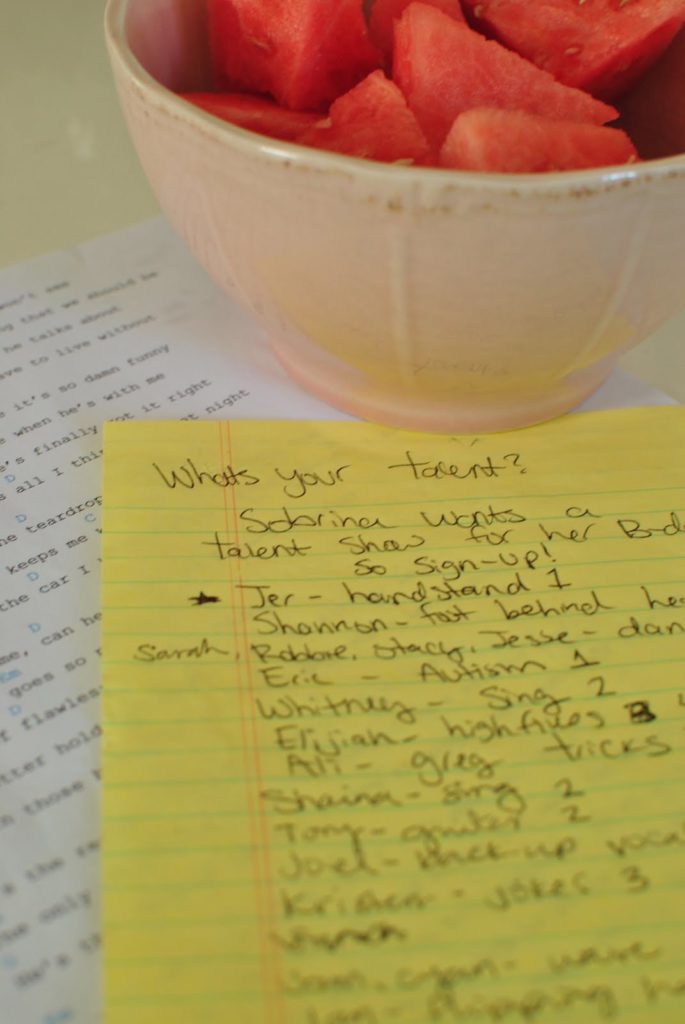 won't see
g that we should be
he talks about
ve to live without
it's so damn funny
when he's with me
e's finally got it right
s all I thi at night
D
he teardrop
C
keeps me
D
the car I
D
me, can he
Em
goes so
D
f flawles
tter hold
n those
the
he only
He's th
Whats your talent?
Sabrina wants a
talent show for her B-da
so sign-up!
★ Jer - handstand 1
Shannon - foot behind hea
Sarah, Robbie, Stacy, Jesse - dan
Eric - Autism 1
Whitney - Sing 2
Elijiah - highfives B
Ali - greg tricks
Shaina - sing 2
Tony - guitar 2
Joel - back-up voca
Kristen - jokes 3